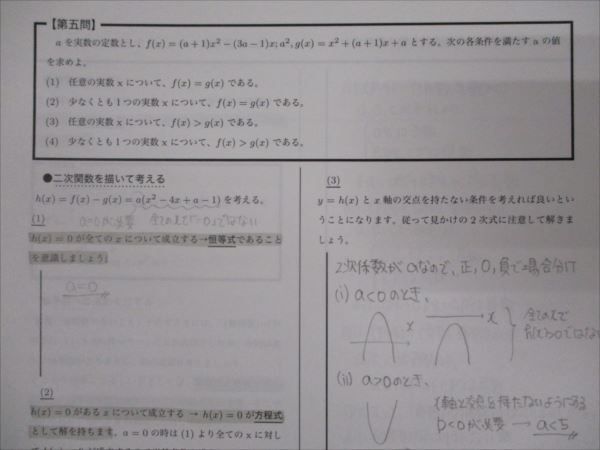 【第五問】
a を実数の定数とし、f(x) = (a+1)x² − (3a−1)x; a², g(x) = x² + (a+1)x + a とする。次の各条件を満たす a の値
を求めよ。
(1) 任意の実数 x について、f(x) = g(x) である。
(2) 少なくとも1つの実数 x について、f(x) = g(x) である。
(3) 任意の実数 x について、f(x) > g(x) である。
(4) 少なくとも1つの実数 x について、f(x) > g(x) である。
●二次関数を描いて考える
h(x) = f(x) − g(x) = a(x² − 4x + a − 1) を考える。
(1)
a=0が必要
h(x) = 0 が全ての x について成立する→恒等式であること
を意識しましょう
a=0
(2)
h(x) = 0 がある x について成立する → h(x) = 0 が方程式
として解を持ちます。a = 0 の時は (1) より全ての x に対し
(3)
y = h(x) と x 軸の交点を持たない条件を考えれば良いとい
うことになります。従って見かけの 2 次式に注意して解きま
しょう。
2次係数がaなので、正,0,負で場合分け
(i) a<0のとき、
x
x
全てのxで
h(x)>0ではない
(ii) a>0のとき、
x軸と交点を持たないようにある
D<0が必要 → a<5